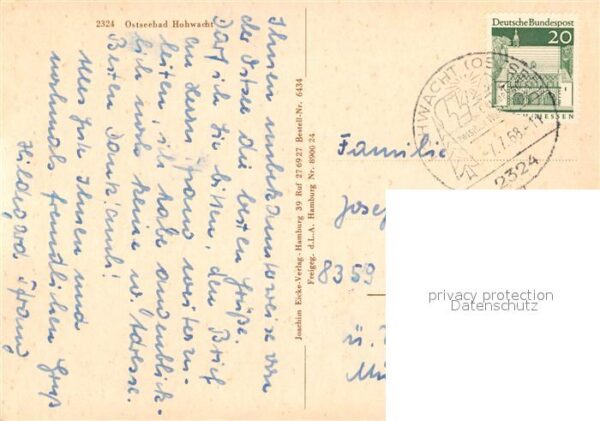 2324 Ostseebad Hohwacht
Ihnen unbekannterweise von
der Ostsee die besten Grüße.
Darf ich Sie bitten, den Brief
an Herrn Franz weiterzu-
leiten; ich habe augenblick-
lich noch keine w. Adresse.
Besten Dank auch!
Alles Gute Ihnen und
nochmals freundlichen Gruß
Hildegard Franz
Joachim Eicke-Verlag - Hamburg 39 Ruf 27 69 27 Bestell-Nr. 6434
Freigeg. d. L.A. Hamburg Nr. 8900 24
Deutsche Bundespost
20
HESSEN
HOHWACHT (OSTSEE)
7.7.68
2324
Familie
Josef
8359
privacy protection
Datenschutz